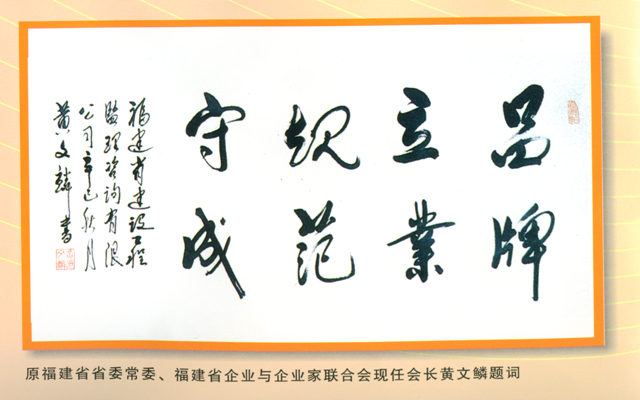 品牌
立業
规范
守成
福建省建设工程
监理咨询有限
公司辛巳秋月
黄文麟書
原福建省省委常委、福建省企业与企业家联合会现任会长黄文鳞题词